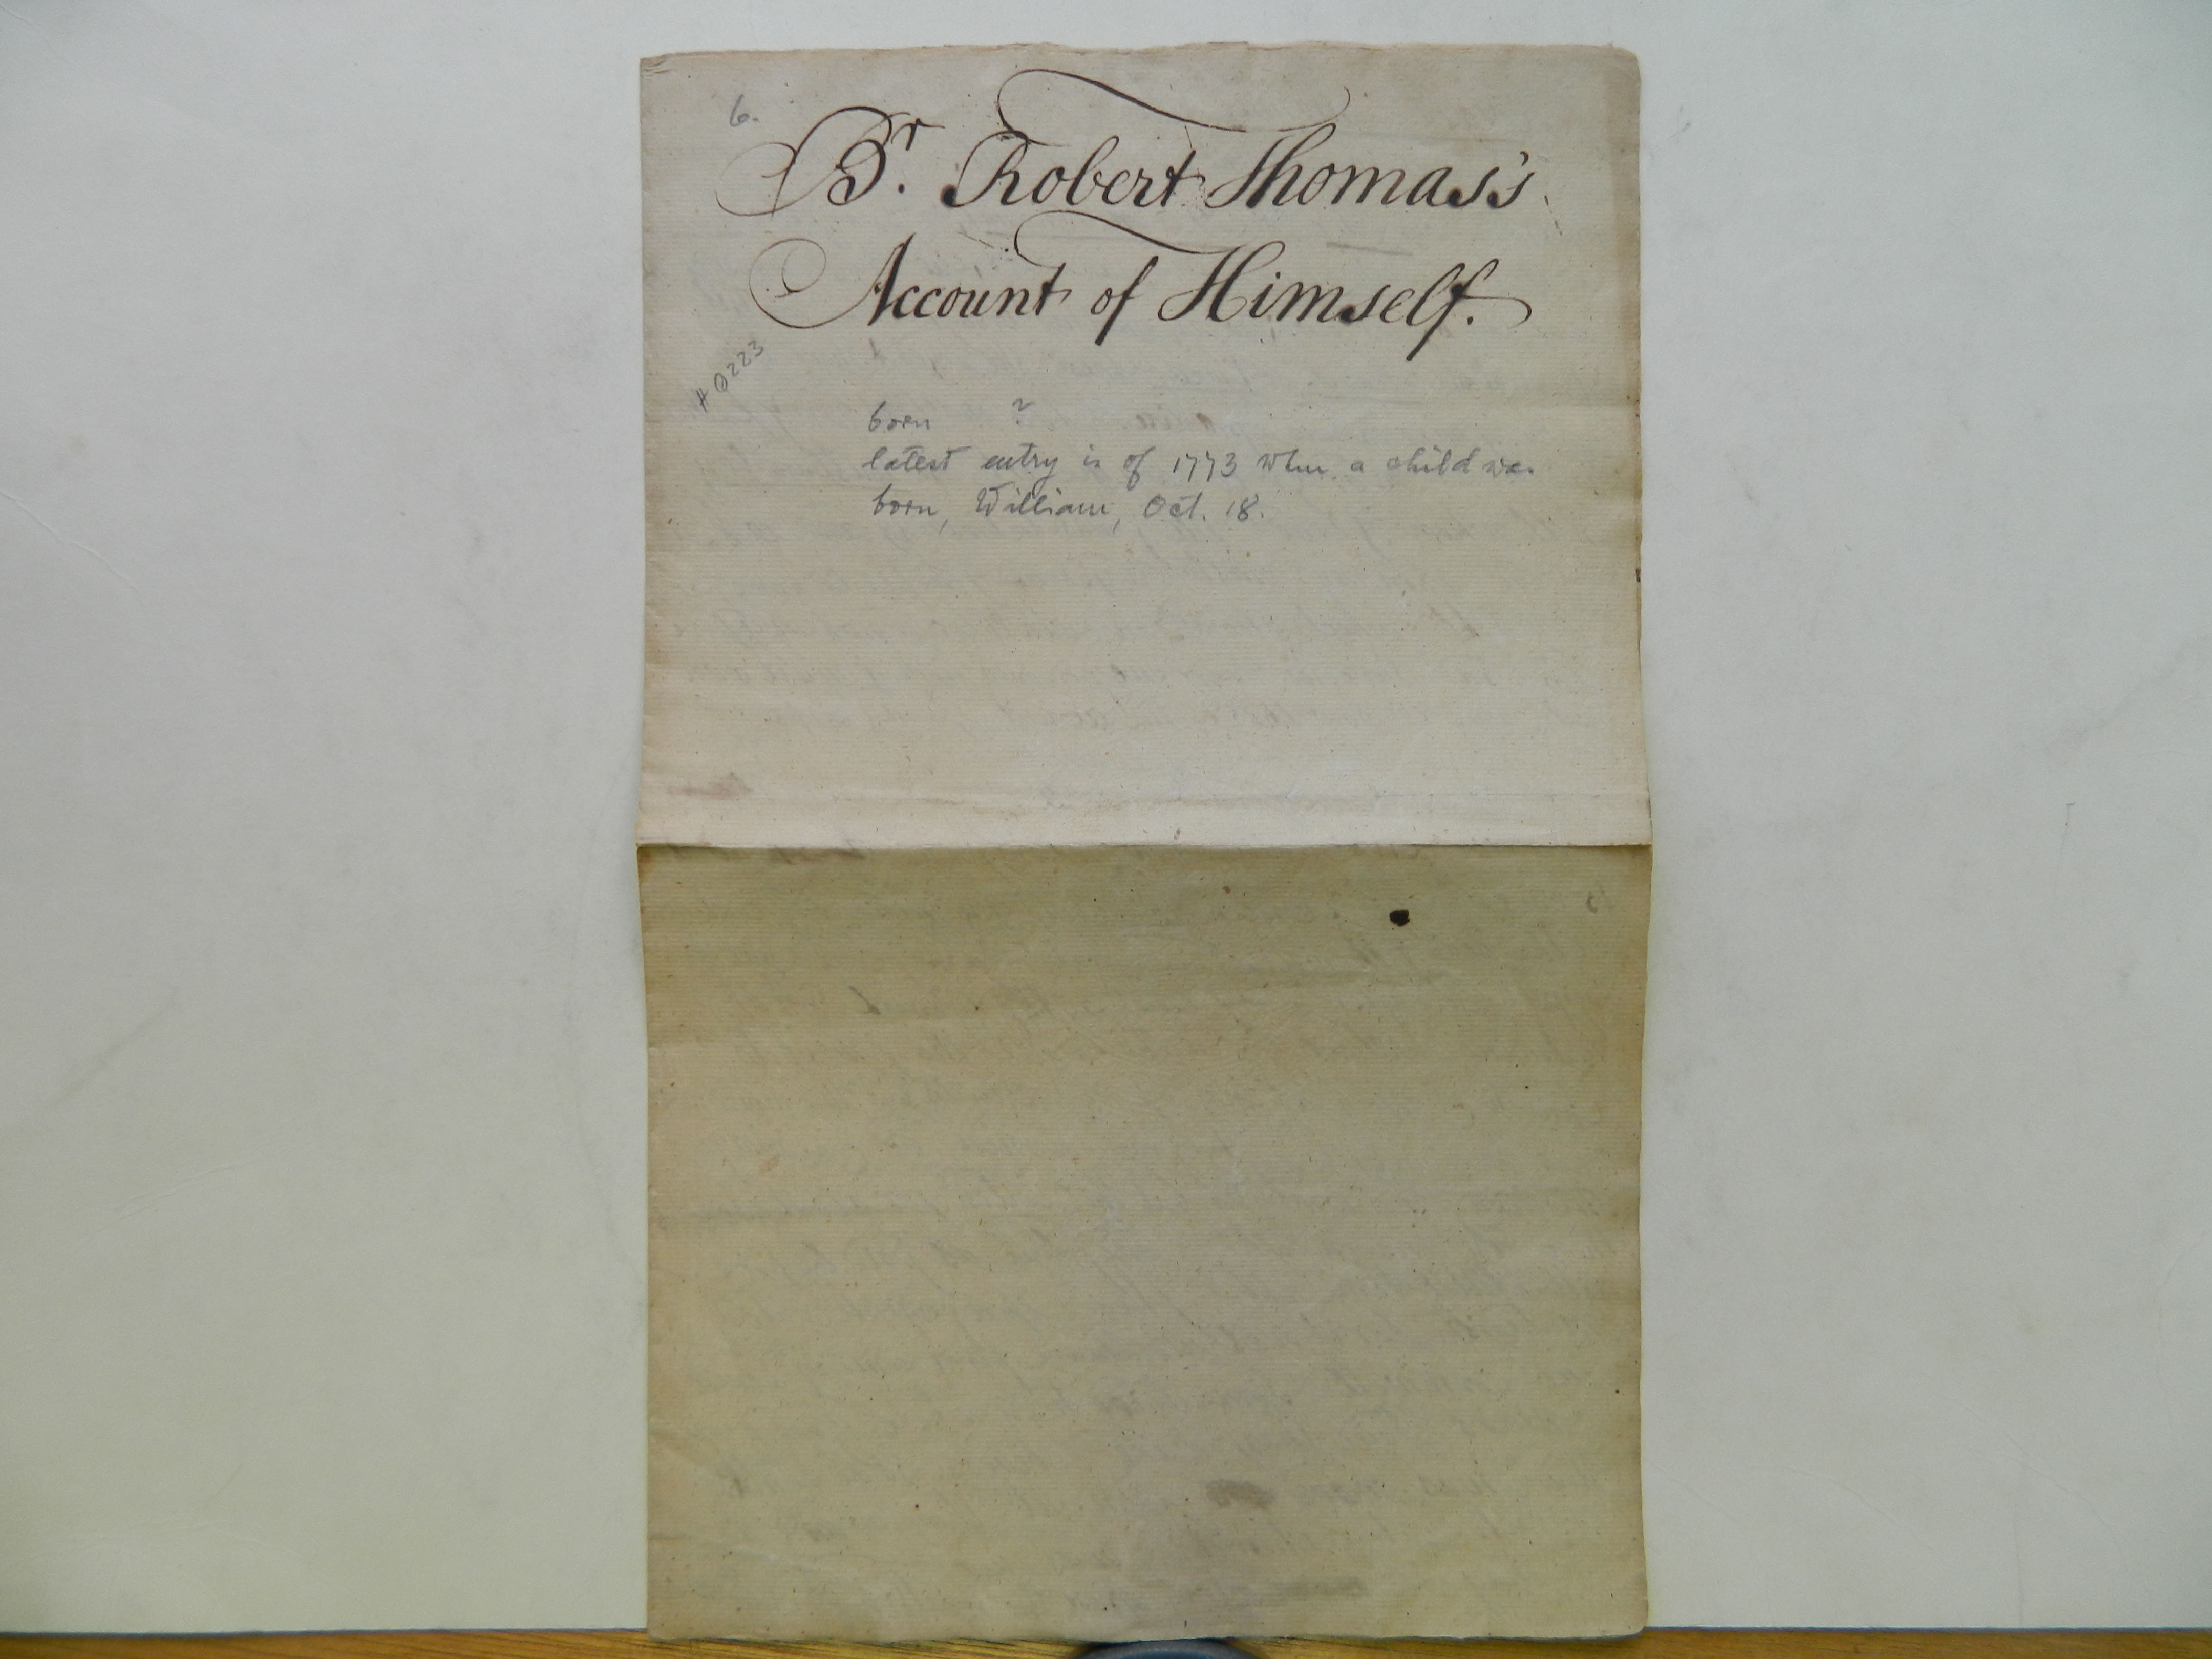 6.
Br. Robert Thomas's
Account of Himself.
#0223
born ?
latest entry is of 1773 when a child was
born, William, Oct. 18.